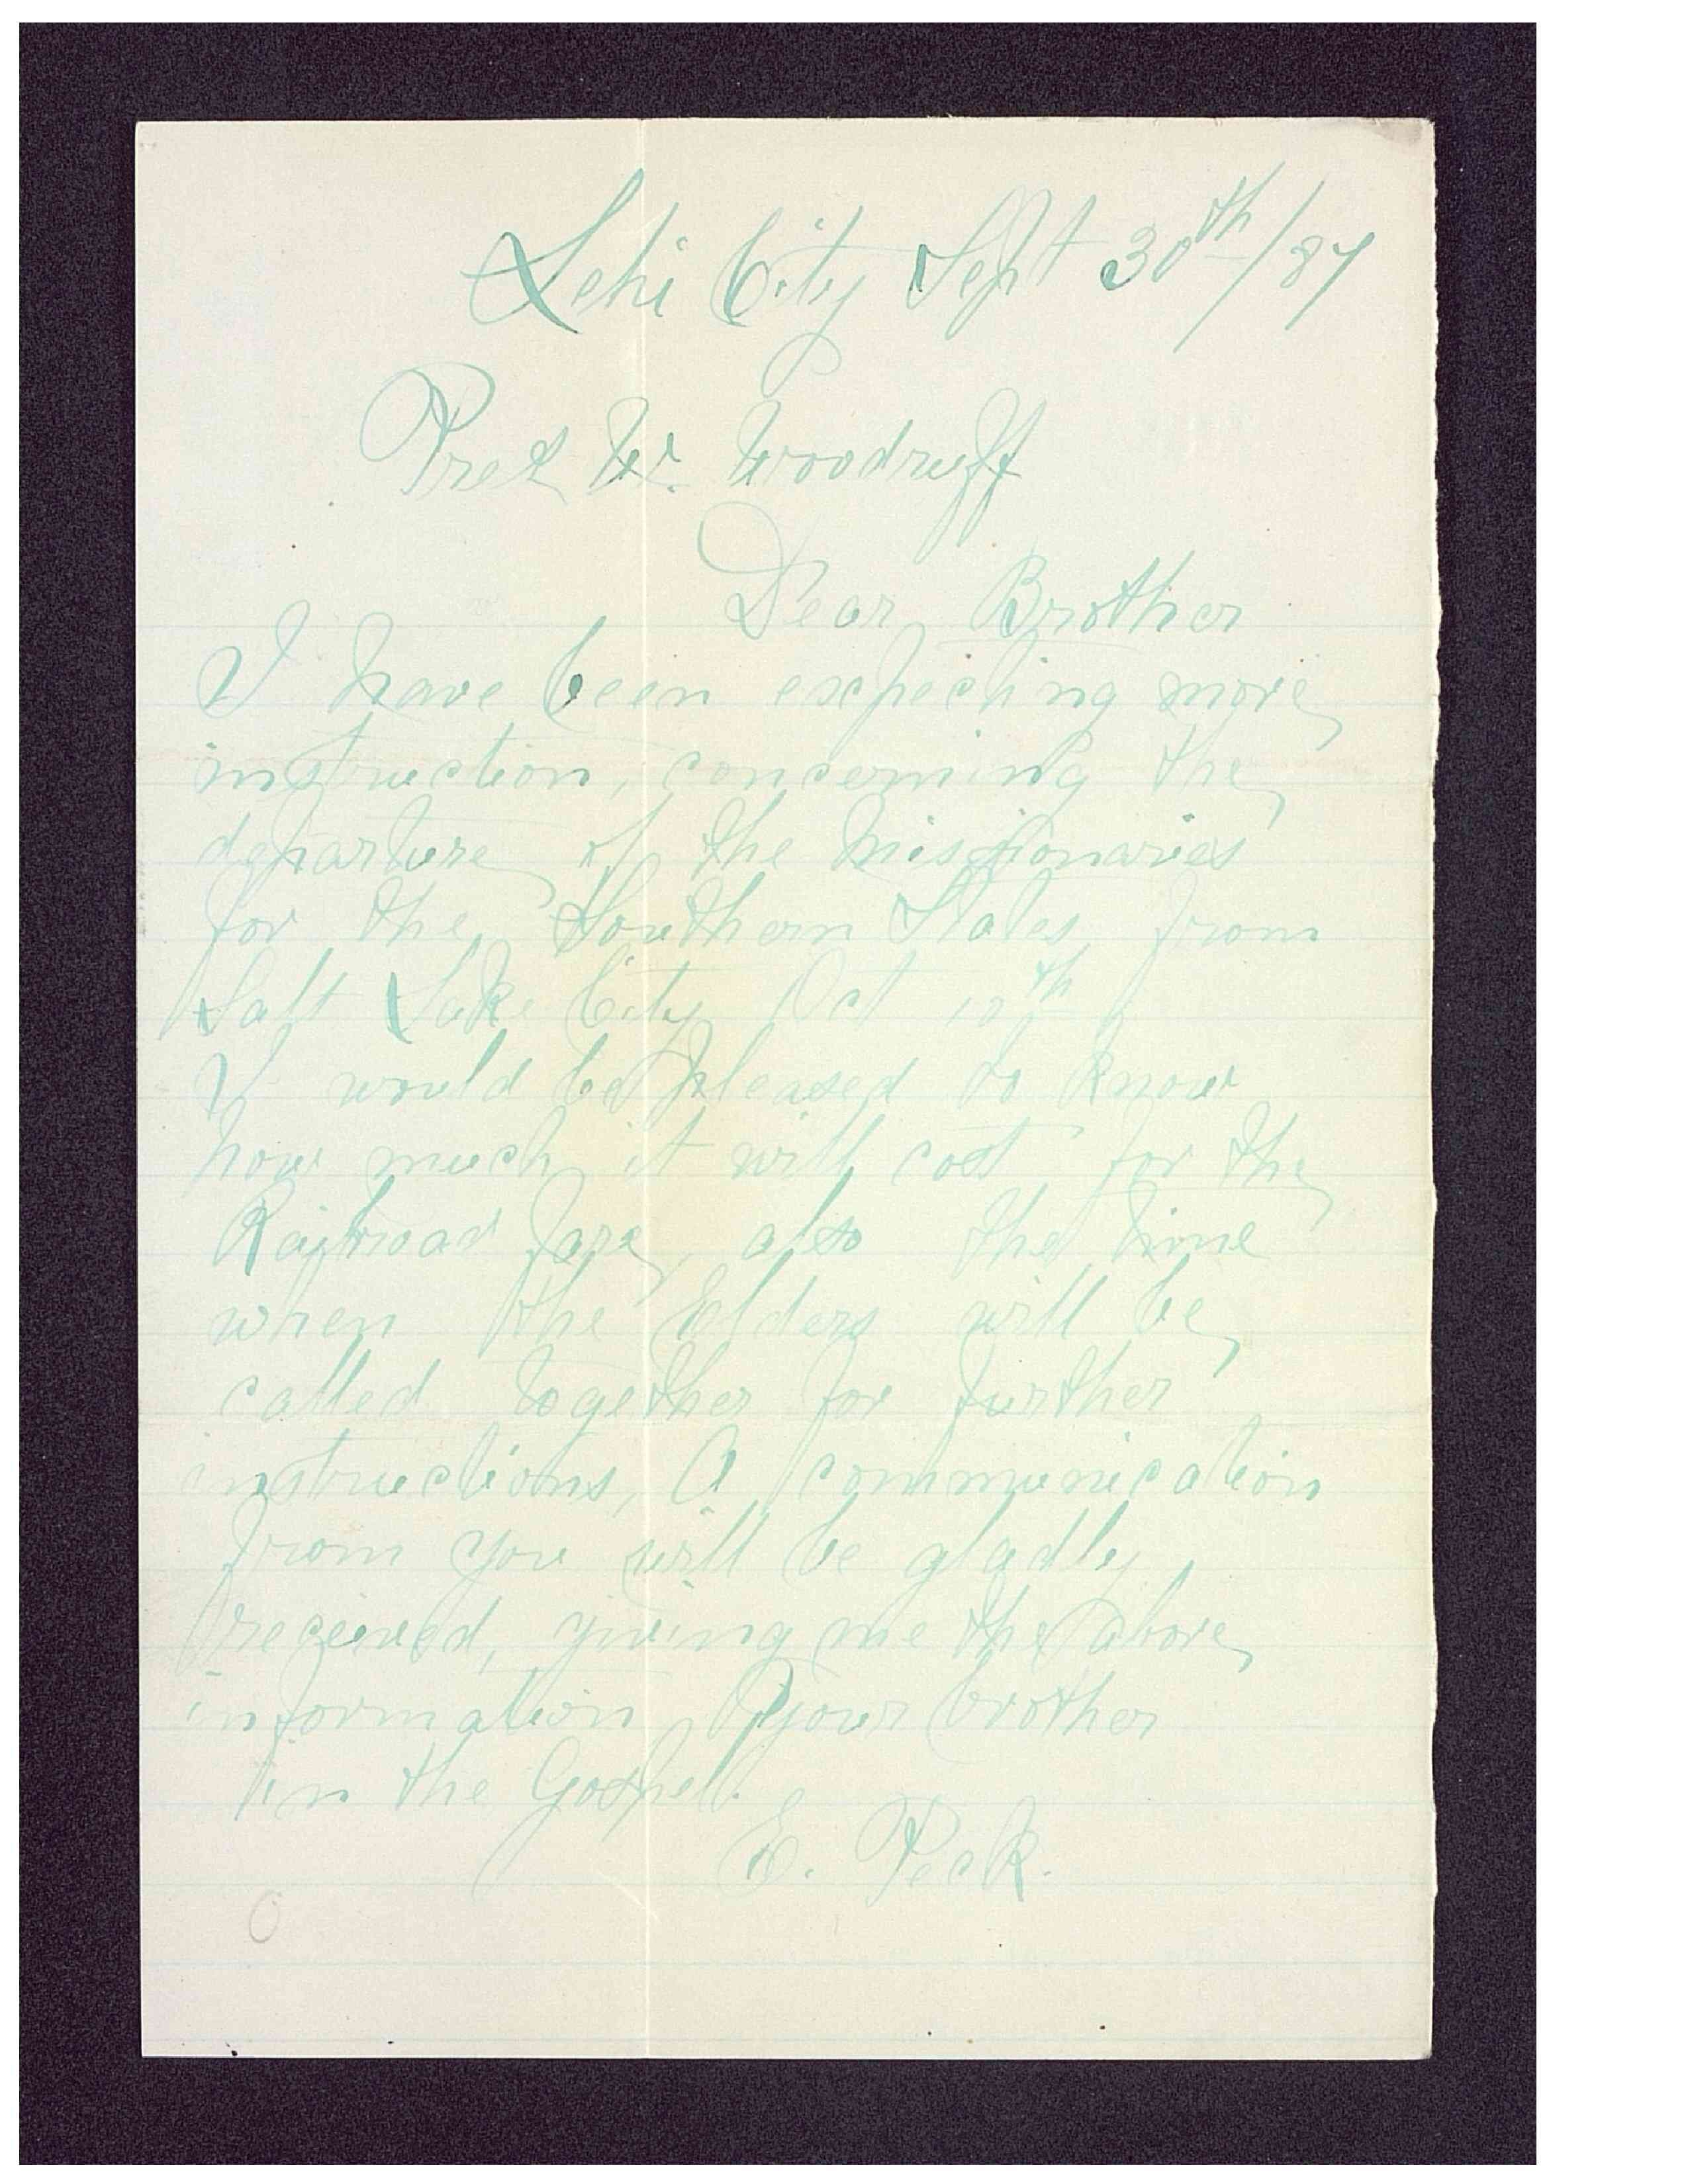 Lehi City Sept 30th/87
Pres W. Woodruff
Dear Brother
I have been expecting more
instruction, concerning the
departure of the Missionaries
for the Southern States from
Salt Lake City Oct 10th
I would be pleased to know
how much it will cost for the
Railroad fare, also the time
when the Elders will be
called together for further
instructions, A communication
from you will be gladly
received, giving me the above
information Your brother
in the Gospel.
E. Peck.